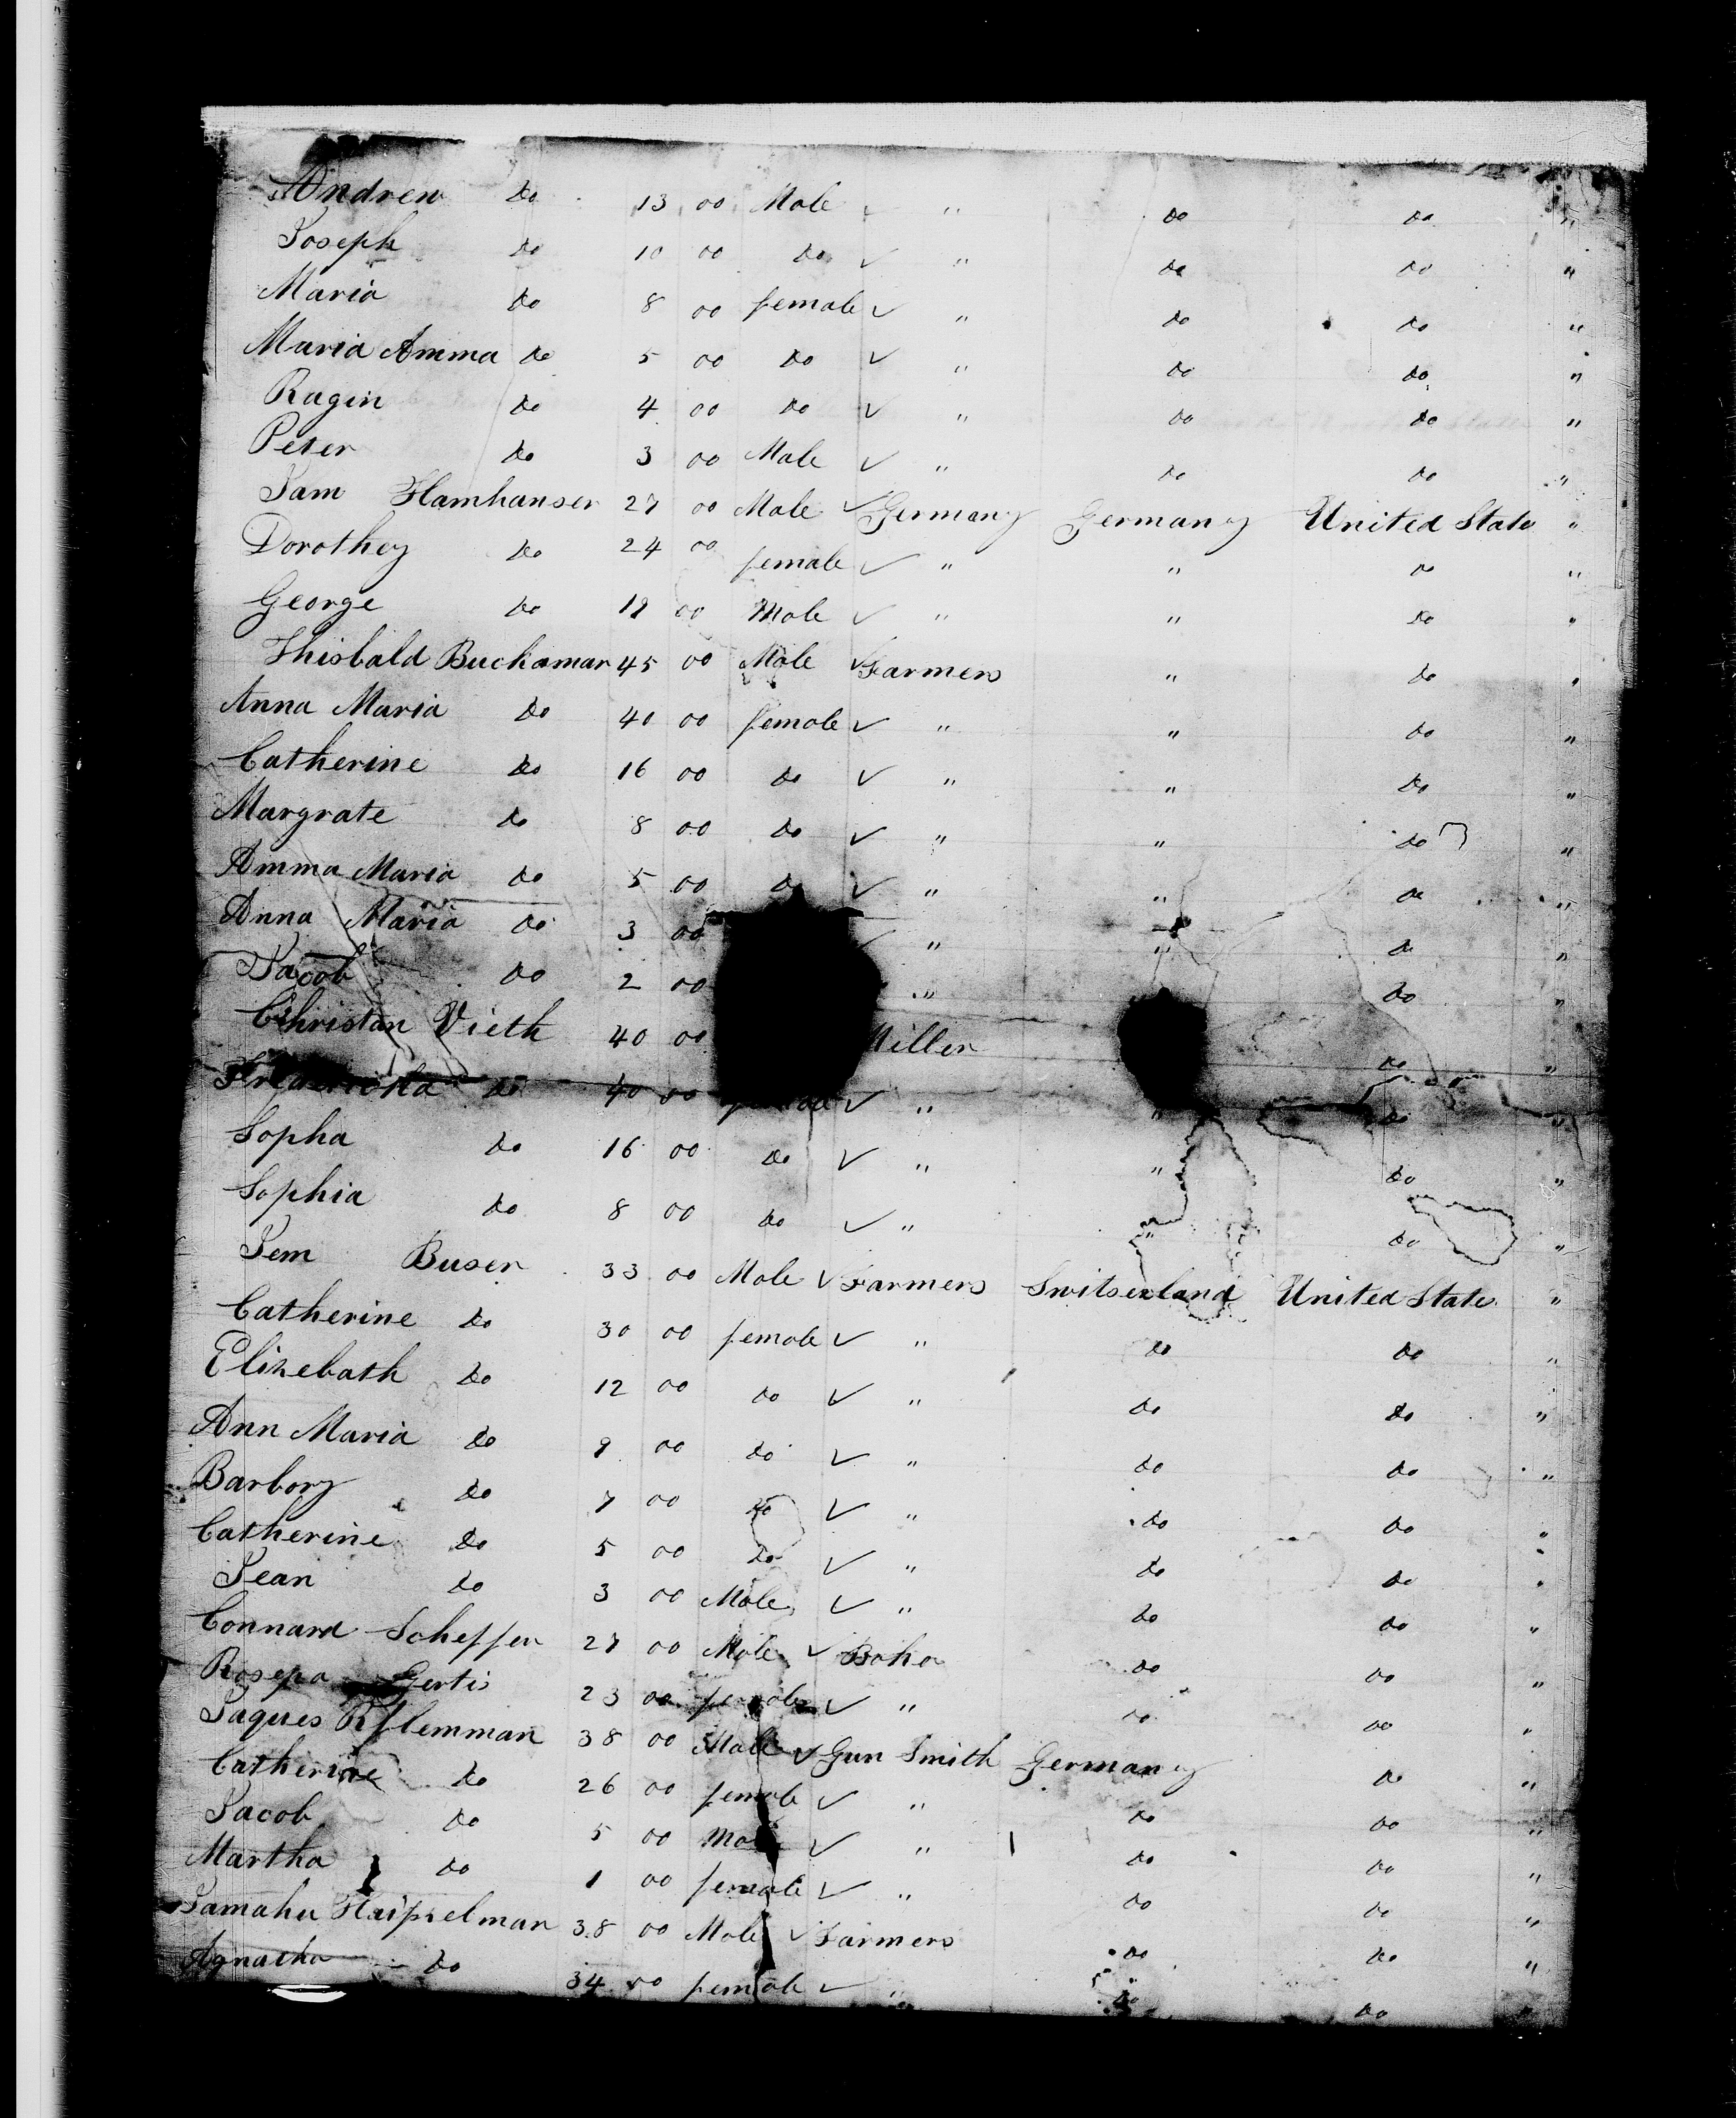 Andrew do 13 00 Male " do do "
Joseph do 10 00 do ✓ " do do "
Maria do 8 00 female ✓ " do do "
Maria Amma do 5 00 do ✓ " do do "
Ragin do 4 00 do ✓ " do do "
Peter do 3 00 Male ✓ " do do "
Jam Hamhanser 27 00 Male ✓ Germany Germany United State "
Dorothey do 24 00 female ✓ " " do "
George do 19 00 Male ✓ " " do "
Thisbald Buckamar 45 00 Male ✓ Farmers " do "
Anna Maria do 40 00 female ✓ " " do "
Catherine do 16 00 do ✓ " " do "
Margrate do 8 00 do ✓ " " do "
Amma Maria do 5 00 do ✓ " " do "
Anna Maria do 3 00 ✓ " " do "
Jacob do 2 00 " do "
Christan Vieth 40 00 Miller do "
do 40 00 ✓ " " do "
Sopha do 16 00 do ✓ " " do "
Sophia do 8 00 do ✓ " " do "
Jem Buser 33 00 Male ✓ Farmers Switserland United State "
Catherine do 30 00 female ✓ " do do "
Elizebath do 12 00 do ✓ " do do "
Ann Maria do 9 00 do ✓ " do do "
Barbory do 7 00 do ✓ " do do "
Catherine do 5 00 do ✓ " do do "
Jean do 3 00 Male ✓ " do do "
Connard Scheffer 27 00 Male ✓ do do "
Rosepa Gertis 23 00 female ✓ " do do "
Jaques 38 00 Male ✓ Gun Smith Germany do "
Catherine do 26 00 female ✓ " do do "
Jacob do 5 00 Male ✓ " do do "
Martha do 1 00 female ✓ " do do "
38 00 Male ✓ Farmers do do "
Agnatha do 34 00 female ✓ " do do "